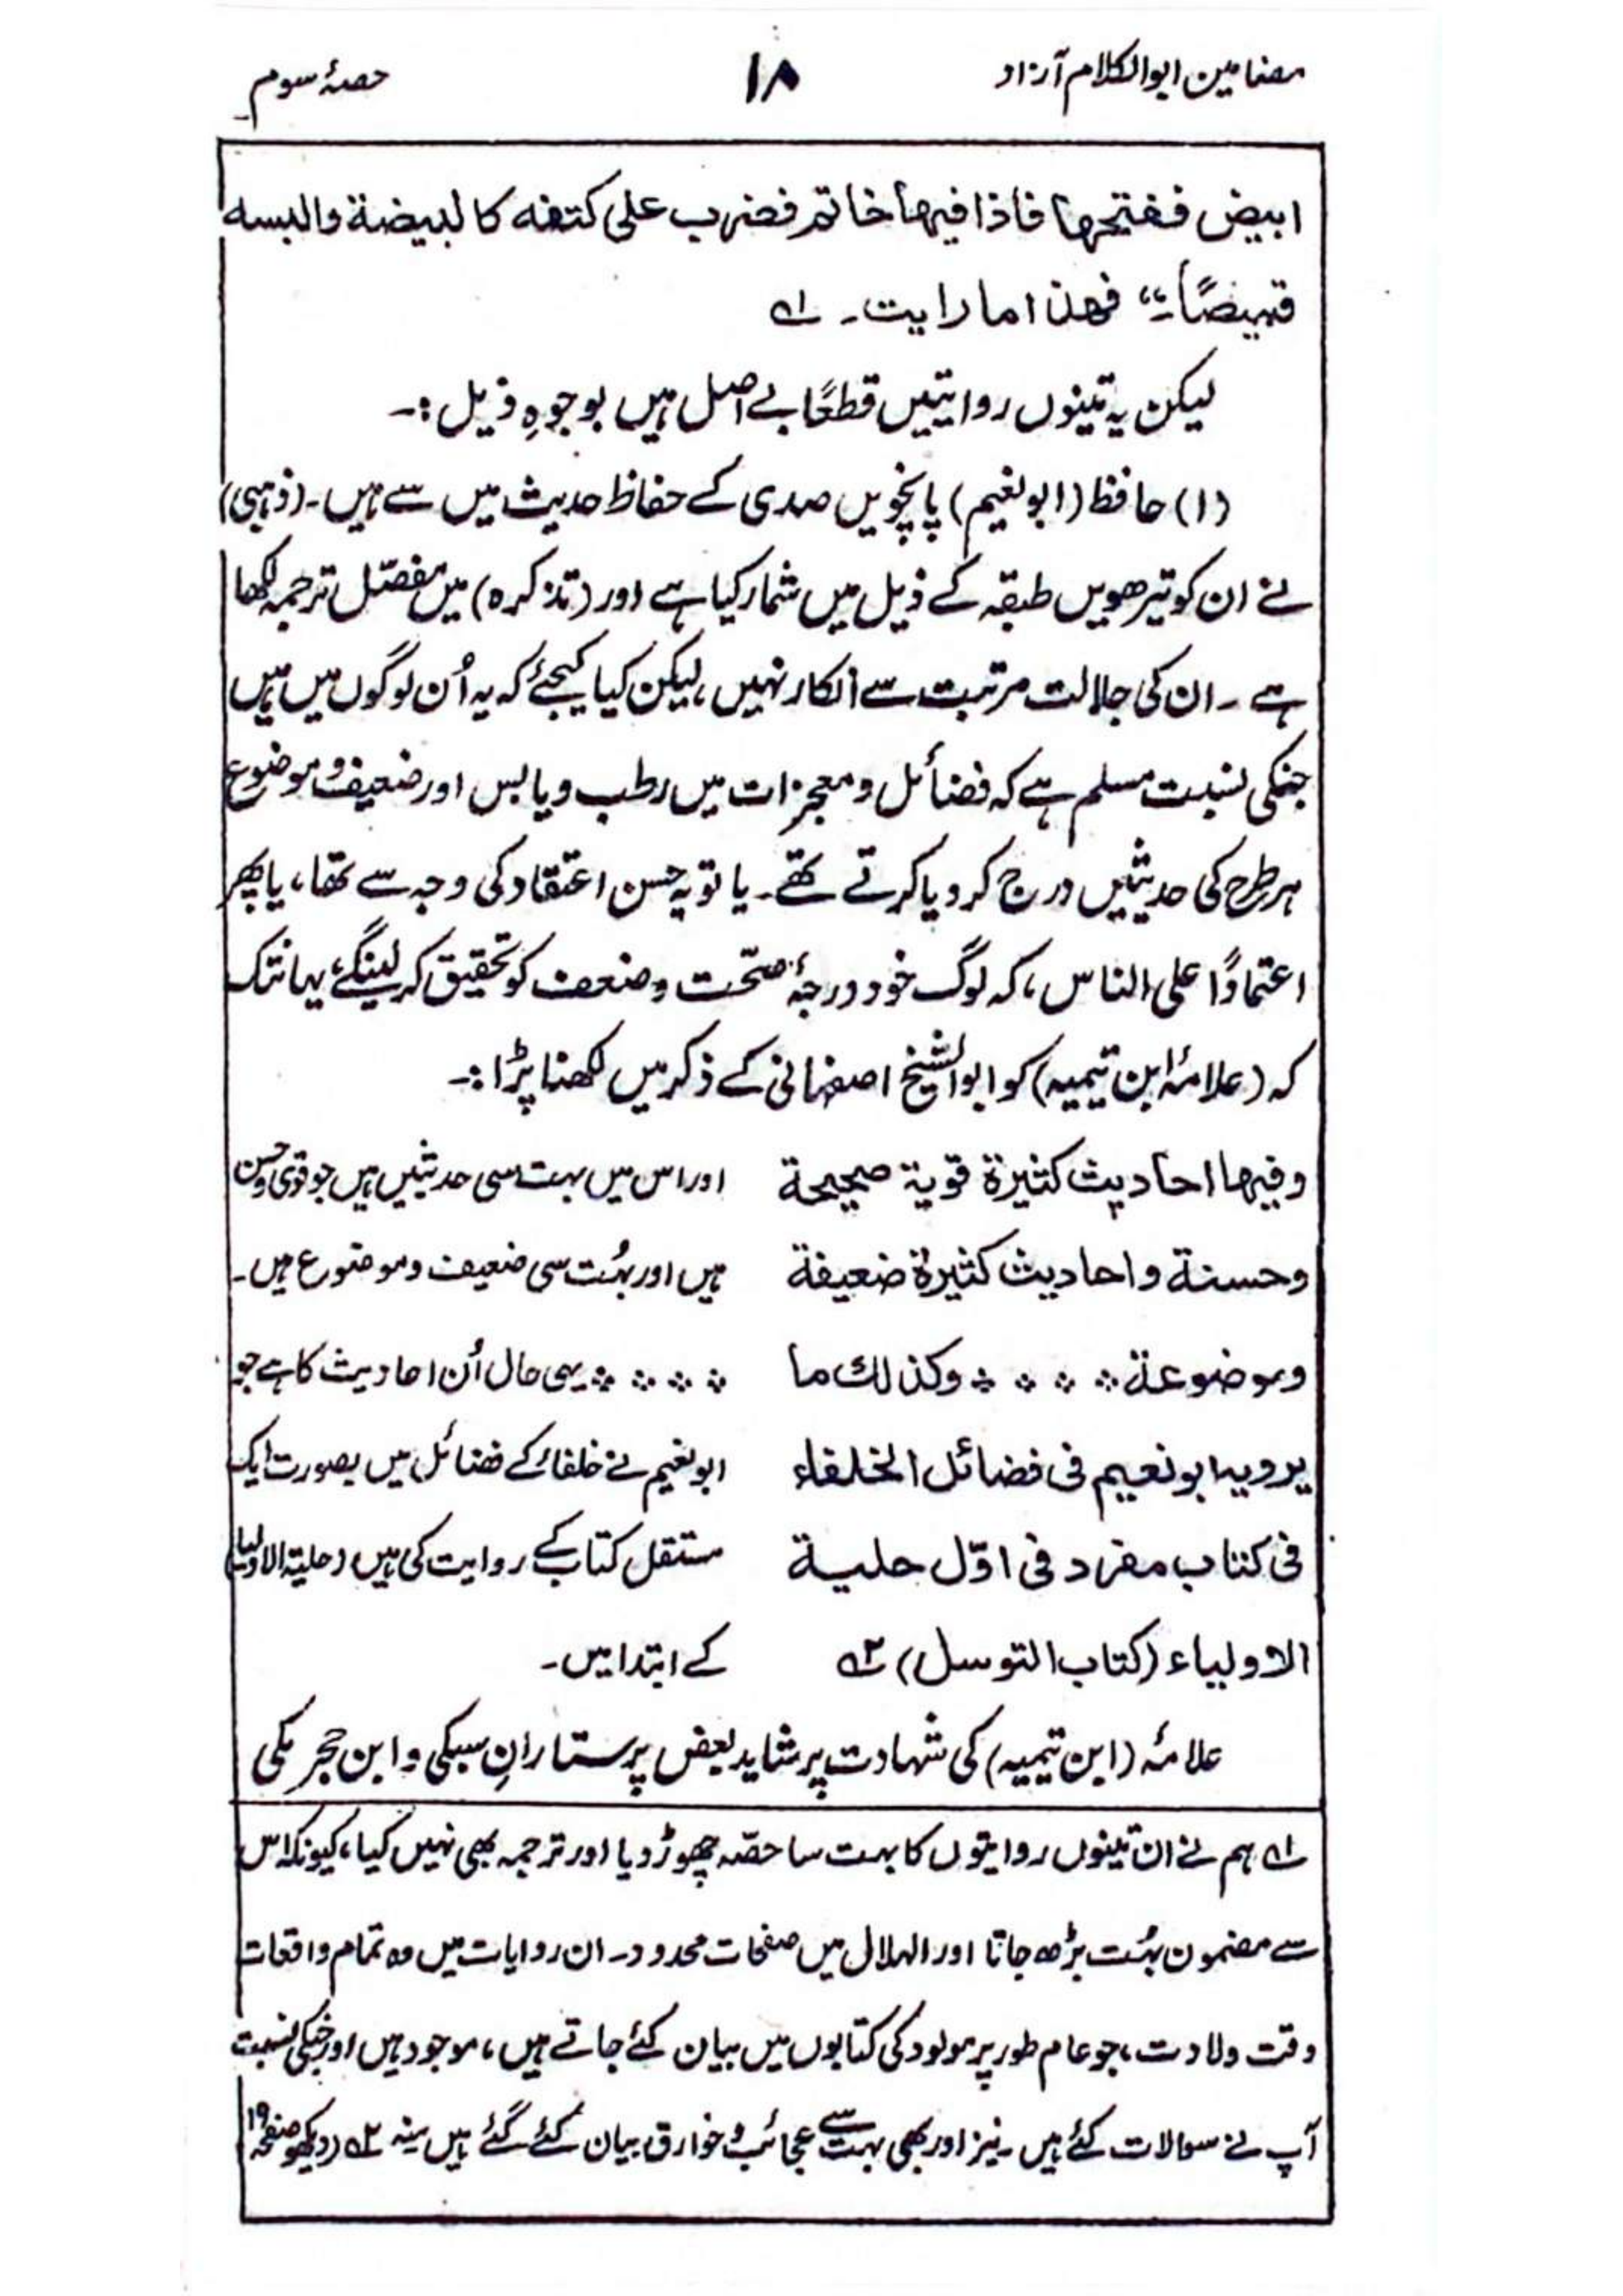 مضامین ابوالکلام آزاد ۱۸ حصۂ سوم
ابیض ففتحها فاذا فیها خاتم فضرب علی کتفه کالبیضة والبسه
قمیصًا۔“ فهذا ما رایت۔ ؎۱
لیکن یہ تینوں روایتیں قطعًا بے اصل ہیں بوجوہِ ذیل :۔
(۱) حافظ (ابونعیم) پانچویں صدی کے حفاظ حدیث میں سے ہیں۔ (ذہبی)
نے ان کو تیرھویں طبقہ کے ذیل میں شمار کیا ہے اور (تذکرہ) میں مفصّل ترجمہ لکھا
ہے ۔ ان کی جلالت مرتبت سے انکار نہیں، لیکن کیا کیجئے کہ یہ اُن لوگوں میں ہیں
جنکی نسبت مسلم ہے کہ فضائل و معجزات میں رطب و یابس اور ضعیف و موضوع
ہر طرح کی حدیثیں درج کر دیا کرتے تھے۔ یا تو یہ حسن اعتقاد کی وجہ سے تھا، یا پھر
اعتمادًا علی الناس، کہ لوگ خود درجۂ صحّت و ضعف کو تحقیق کر لینگے، یہانتک
کہ (علامۂ ابن تیمیہ) کو ابو الشیخ اصفہانی کے ذکر میں لکھنا پڑا :۔
وفیها احادیث کثیرة قویة صحیحة اور اس میں بہت سی حدیثیں ہیں جو قوی و حسن
وحسنة واحادیث کثیرة ضعیفة ہیں اور بہُت سی ضعیف و موضوع ہیں۔
وموضوعة ؞ ؞ ؞ ؞ وکذلك ما ؞ ؞ ؞ ؞ یہی حال اُن احادیث کا ہے جو
یرویه ابونعیم فی فضائل الخلفاء ابونعیم نے خلفاء کے فضائل میں بصورت ایک
فی کتاب مفرد فی اوّل حلیة مستقل کتاب کے روایت کی ہیں (حلیۃ الاولیا)
الاولیاء (کتاب التوسل) ؎۲ کے ابتدا میں۔
علامۂ (ابن تیمیہ) کی شہادت پر شاید بعض پرستارانِ سبکی و ابن حجر مکی
؎۱ ہم نے ان تینوں روایتوں کا بہت سا حصّہ چھوڑ دیا اور ترجمہ بھی نہیں کیا، کیونکہ اس
سے مضمون بہُت بڑھ جاتا اور الہلال میں صفحات محدود۔ ان روایات میں وہ تمام واقعات
وقت ولادت، جو عام طور پر مولود کی کتابوں میں بیان کئے جاتے ہیں، موجود ہیں اور جنکی نسبت
آپ نے سوالات کئے ہیں ۔ نیز اور بھی بہت سے عجائب و خوارق بیان کئے گئے ہیں منہ ؎۲ (دیکھو صفحہ ۱۹